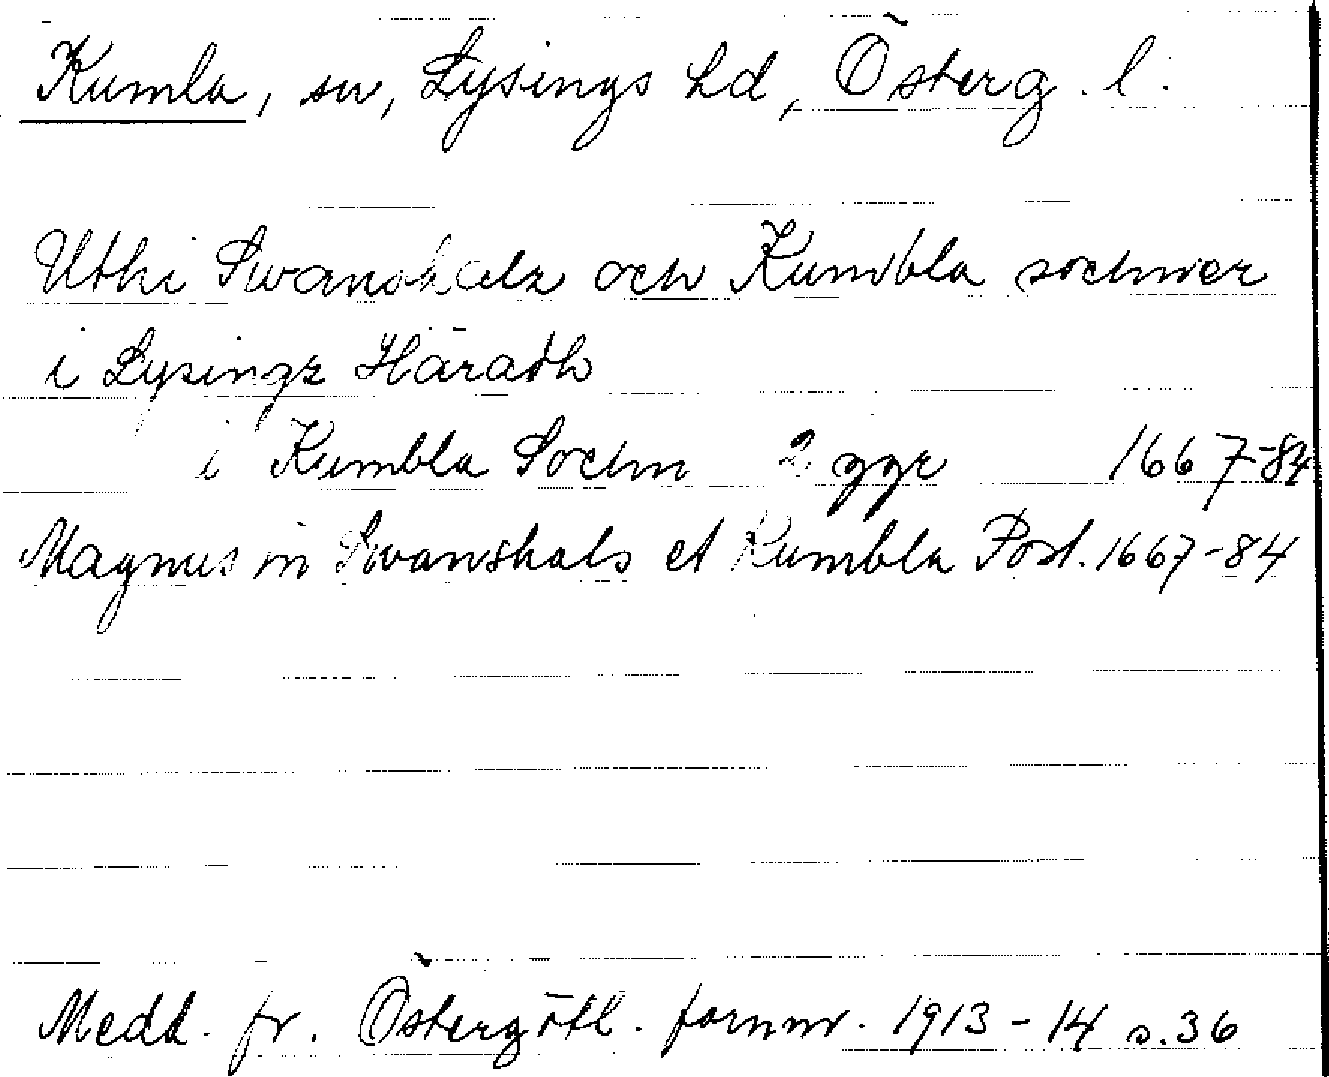 Kumla, sn, Lysings hd, Österg. l.
Uthi Swanshalz och Kumbla sochner
i Lysingz Häradh
i Kumbla Sochn 2 ggr 1667-84
Magnus in Swanshals et Kumbla Past. 1667-84
Medd. fr. Östergötl. fornm. 1913-14 s. 36